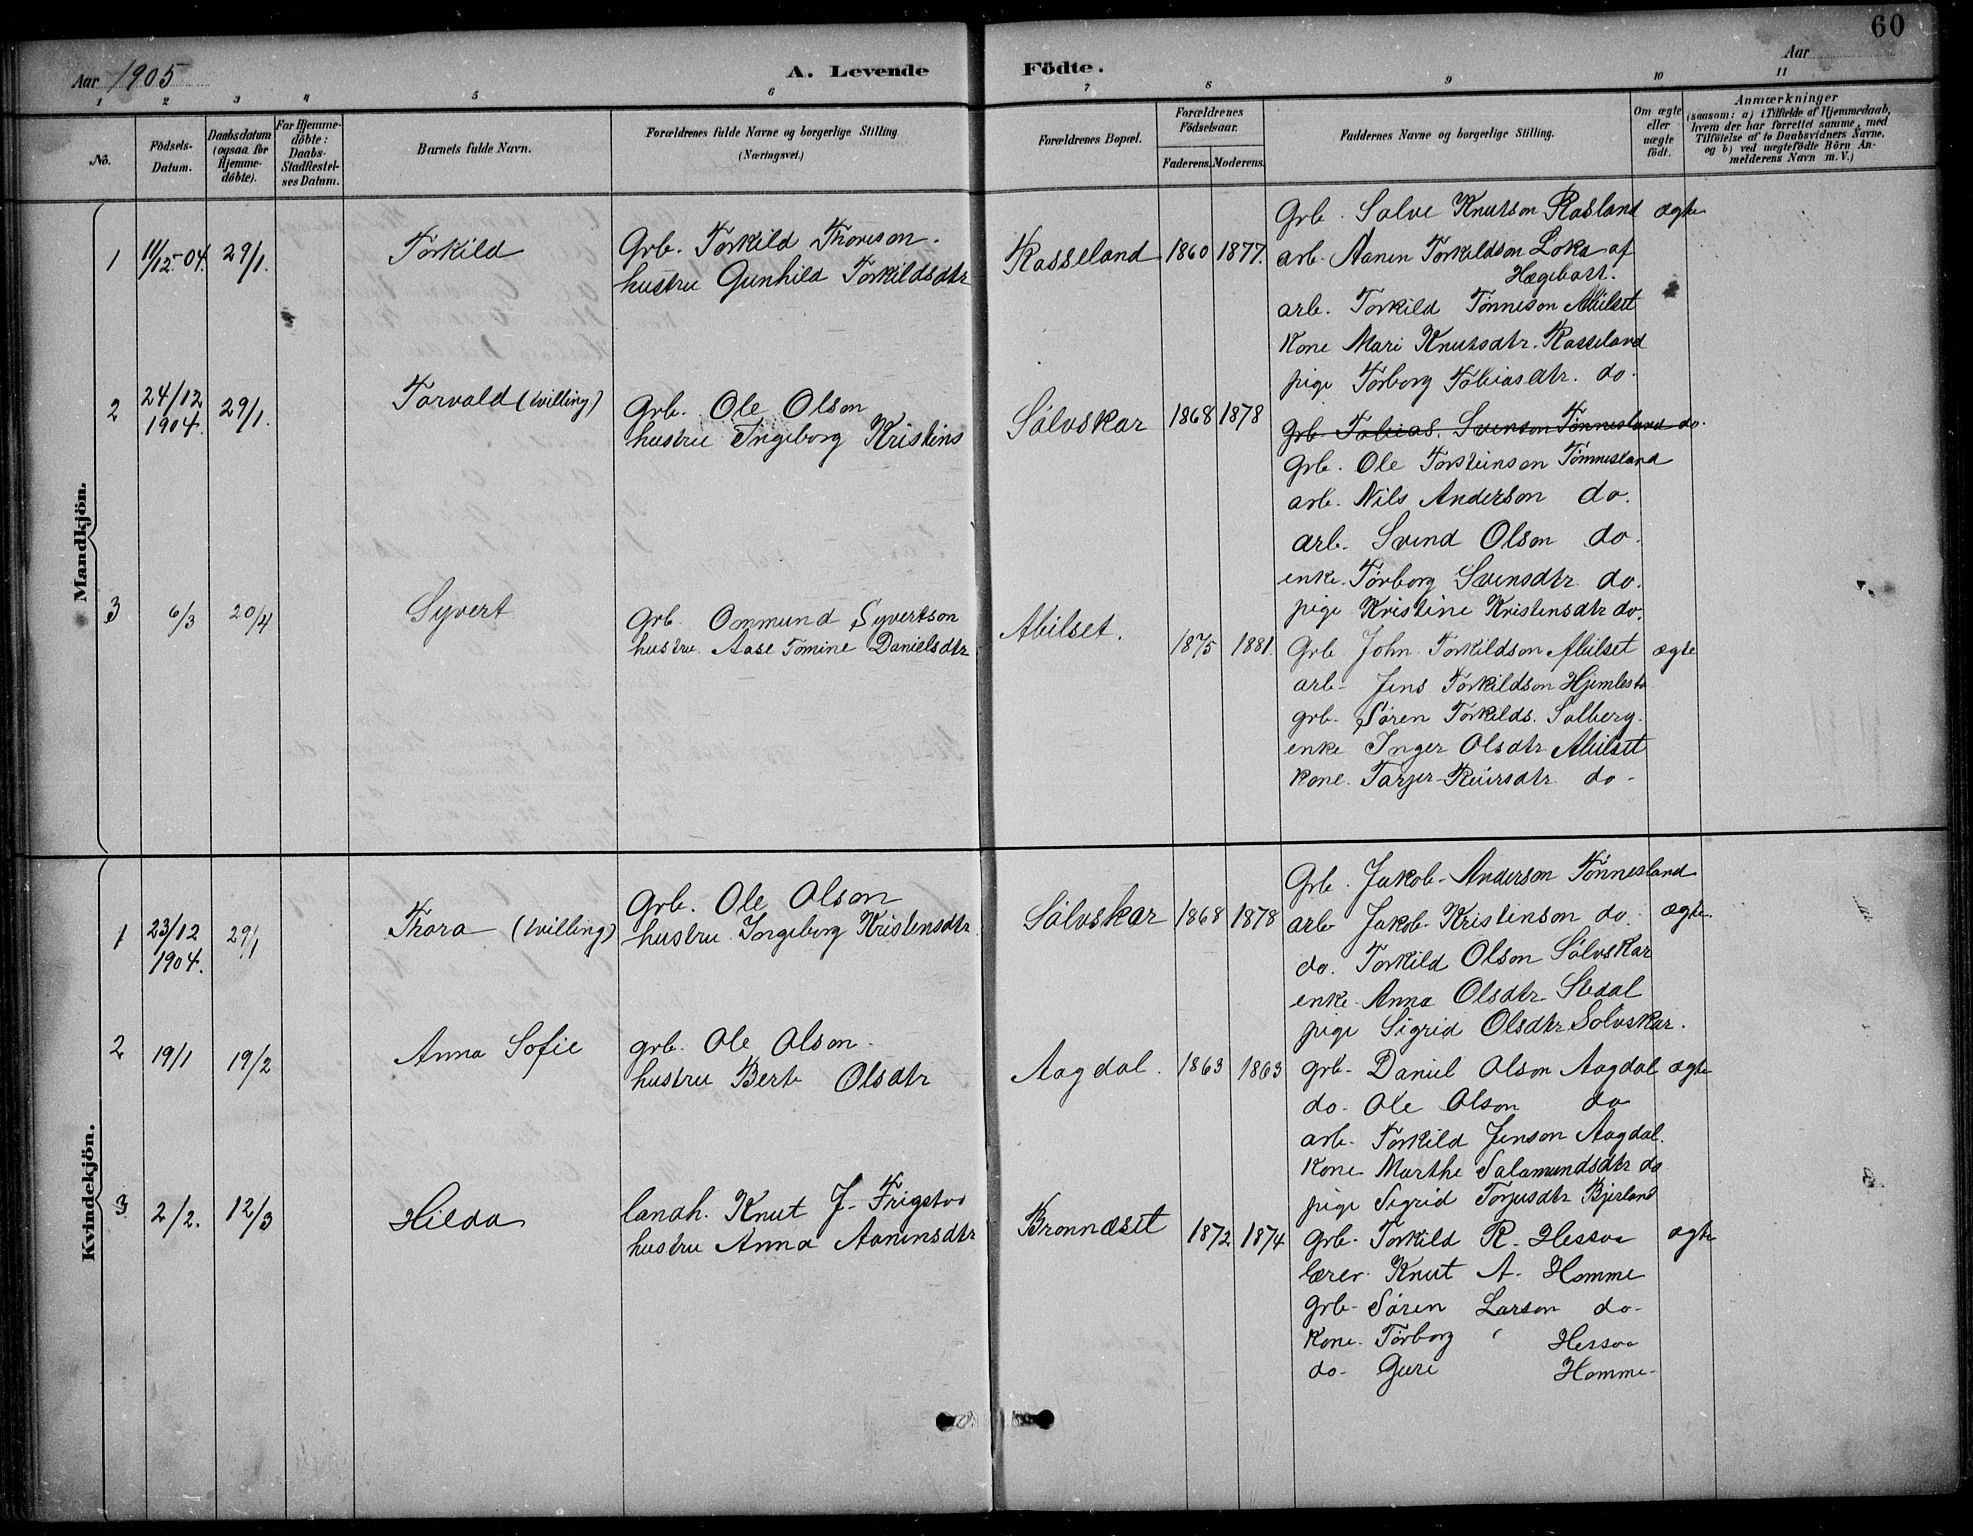 60
Aar 1905
A. Levende Födte.
Aar
1 2 3 4 5 6 7 8 9 10 11
No.
Födsels-Datum.
Daabsdatum (ogsaa for Hjemme-döbte).
For Hjemme-döbte: Daabs-Stadfæstel-ses Datum.
Barnets fulde Navn.
Forældrenes fulde Navne og borgerlige Stilling.
(Næringsvei.)
Forældrenes Bopæl.
Forældrenes Födselsaar.
Faderens. Moderens.
Faddernes Navne og borgerlige Stilling.
Om ægte eller uægte födt.
Anmærkninger
(saasom: a) i Tilfælde af Hjemmedaab, hvem der har forrettet samme, med Tilföielse af to Daabsvidners Navne, og b) ved uægtefödte Börn An-melderens Navn m. V.)
Mandkjön.
1 11/12-04. 29/1. Torkild
Grb. Torkild Thorison.
hustru Gunhild Torkildsdtr
Rosseland 1860 1877.
Grb. Salve Knutson Rosland ægte
arb. Aanen Torkildson Loka af
Hægebost.
arb. Torkild Tönneson Abilset
Kone Mari Knutsdtr. Rosseland
pige Torborg Tobiasdtr. do.
2 24/12 1904. 29/1. Torvald (tvilling)
Grb. Ole Olson
hustru Ingeborg Kristens
Sölvskar 1868 1878
Grb Tobias Svenson Tönnesland do.
Grb. Ole Torsteinson Tönnesland
arb. Nils Anderson do.
arb. Svend Olson do.
enke. Törborg Svensdtr. do.
pige Kristine Kristensdtr do.
3 6/3 20/4 Syvert
Grb. Ommund Syvertson
hustru. Aase Tomine Danielsdtr
Abilset. 1875 1881.
Grb. John Torkildson Abilset ægte
arb- Jens Torkildson Hjemlestø
grb. Sören Torkilds. Solberg.
enke Inger Olsdtr Abilset
Kone. Tarjer Reiersdtr do-
Kvindekjön.
1 23/12 1904. 29/1 Thora (tvilling)
Grb. Ole Olson
hustru Ingeborg Kristensdtr.
Sölvskar 1868 1878
Grb. Jakob Anderson Tönnesland
arb Jakob Kristenson do. ægte.
do. Torkild Olson Sölvskar
enke. Anna Olsdtr Stedal
pige Sigrid Olsdtr Solvskar.
2 19/1 19/2 Anna Sofie
grb. Ole Olson.
hustru Berte Olsdtr
Aagdal. 1863 1863
grb- Daniel Olson Aagdal ægte
do- Ole Olson do
arb- Torkild Jenson Aagdal.
Kone Marthe Salamundsdtr do
pige Sigrid Torjusdtr Bjerland
3 2/2. 12/3 Hilda
landh. Knut J. Frigstad
hustru Anna Aanensdtr
Bronnæset 1872 1874
Grb- Torkild R. Hessaa ægte
lærer Knut A. Homme
Grb- Sören Larson do-
Kone. Torborg " Hessaa
do- Guri Homme-